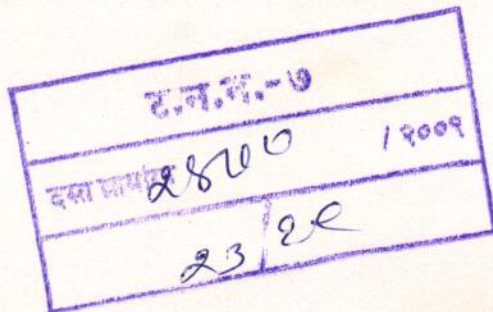 ट.न.न.-७
दस्त क्रमांक २४७० / २००९
२३/२९